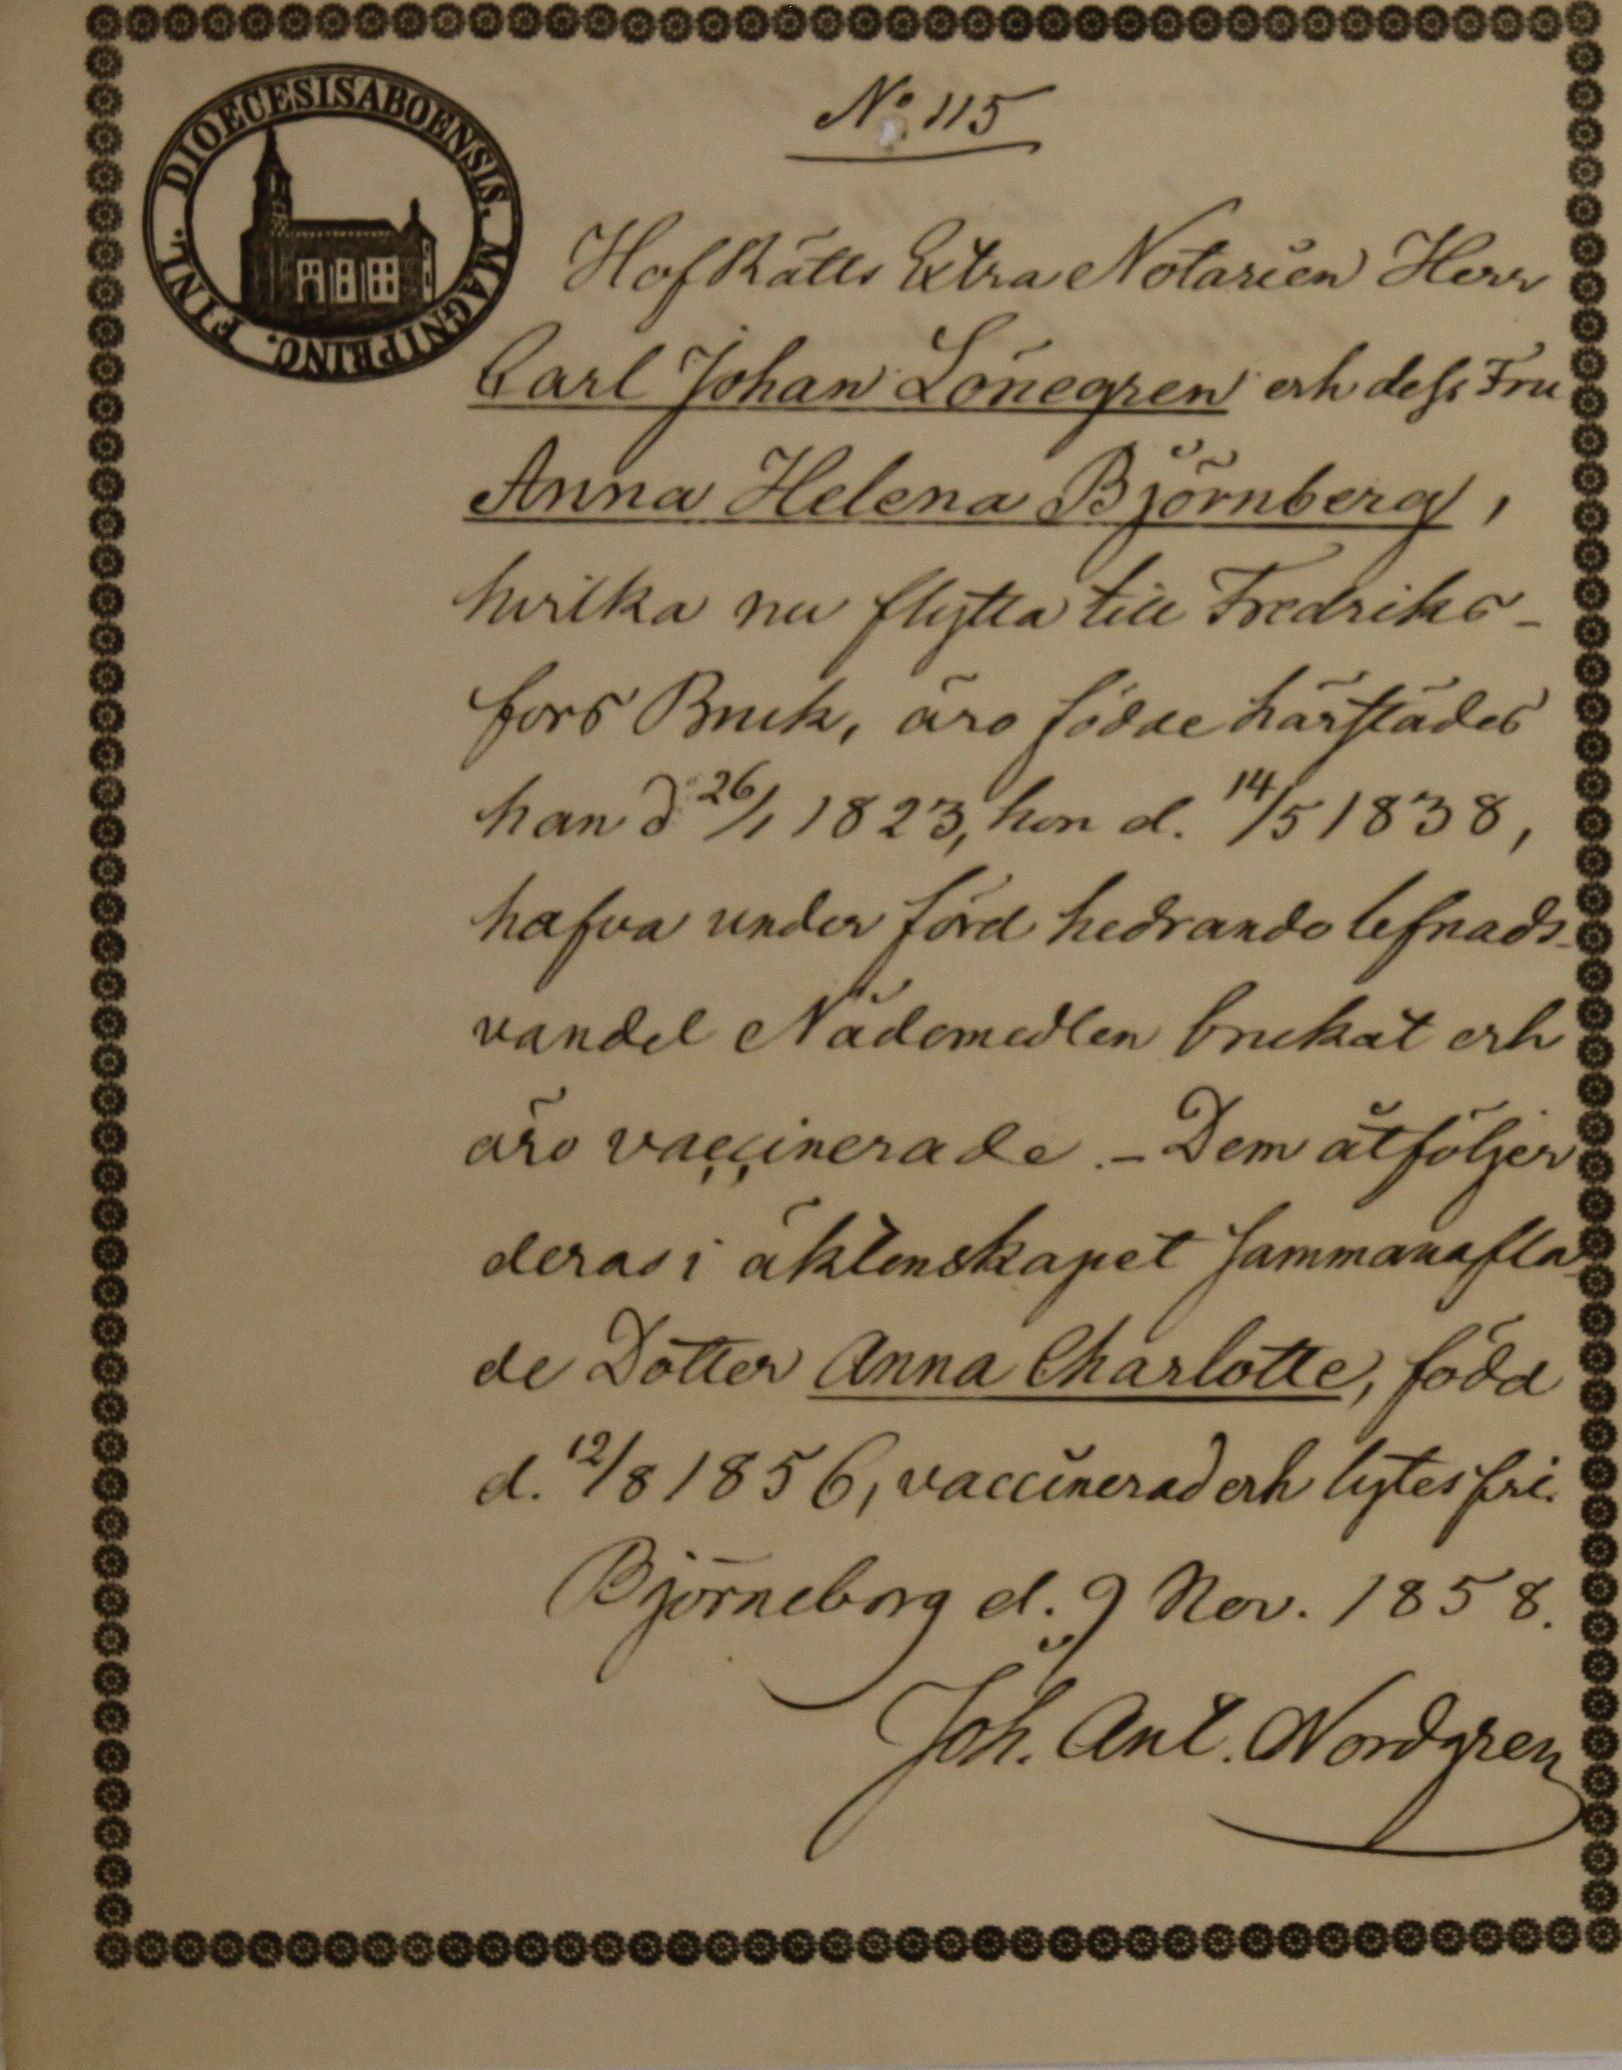 DIOECESISABOENSIS. MAGNIPRINC. FINL.
No. 115
HofRätts Extra Notarien Herr
Carl Johan Lönegren och dess Fru
Anna Helena Björnberg,
hvilka nu flytta till Fredriks-
fors Bruk, äro födde härstädes
han d 26/1 1823, hon d. 14/5 1838,
hafva under förd hedrande lefnads-
vandel Nådemedlen brukat och
äro vaccinerade. – Dem åtföljer
deras i äktenskapet sammanafla-
de Dotter Anna Charlotte, född
d. 12/8 1856, vaccinerad och lytesfri.
Björneborg d. 9 Nov. 1858.
Joh. Ant. Nordgren